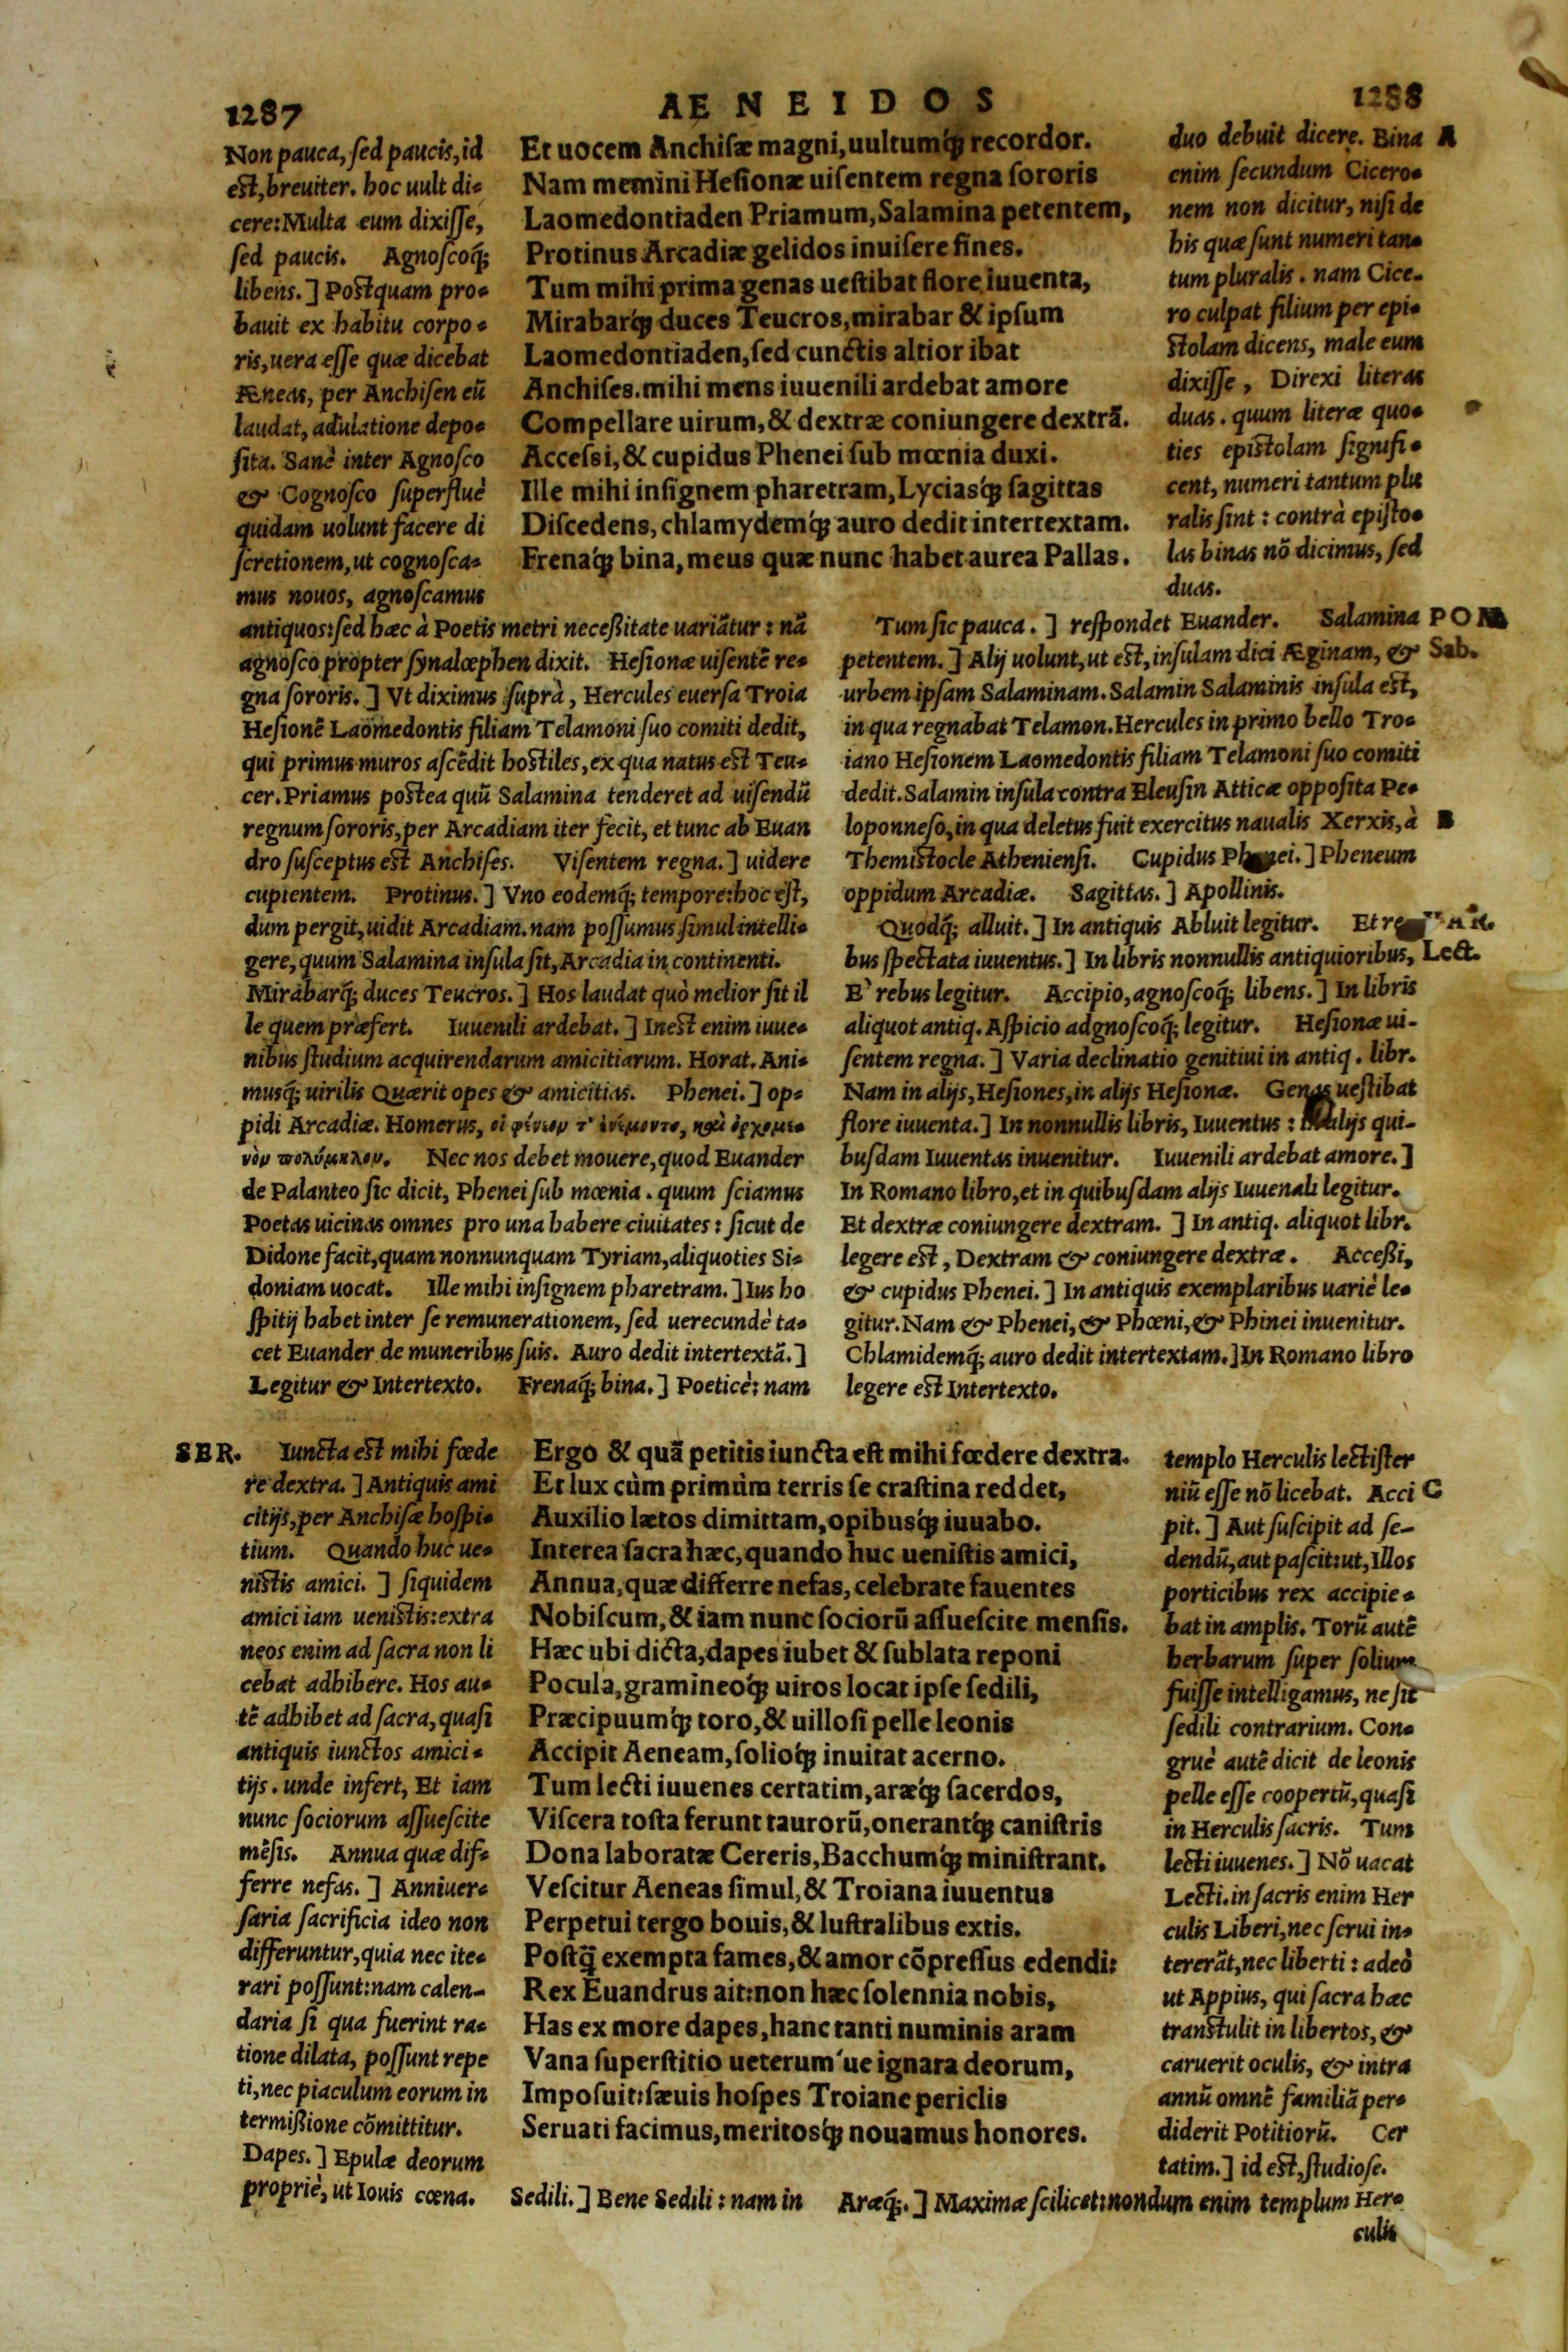 1287
AENEIDOS
1288
Non pauca, sed paucis, id
est, breuiter. hoc uult di-
cere: Multa eum dixisse,
sed paucis. Agnoscoq́;
libens.] Postquam pro-
bauit ex habitu corpo-
ris, uera esse quæ dicebat
Æneas, per Anchisen eũ
laudat, adulatione depo-
sita. Sanè inter Agnosco
& Cognosco superfluè
quidam uolunt facere di
scretionem, ut cognosca-
mus nouos, agnoscamus
Et uocem Anchisæ magni, uultumq́; recordor.
Nam memini Hesionæ uisentem regna sororis
Laomedontiaden Priamum, Salamina petentem,
Protinus Arcadiæ gelidos inuisere fines.
Tum mihi prima genas uestibat flore iuuenta,
Mirabarq́; duces Teucros, mirabar & ipsum
Laomedontiaden, sed cunctis altior ibat
Anchises. mihi mens iuuenili ardebat amore
Compellare uirum, & dextræ coniungere dextrã.
Accessi, & cupidus Phenei sub mœnia duxi.
Ille mihi insignem pharetram, Lyciasq́; sagittas
Discedens, chlamydemq́; auro dedit intertextam.
Frenaq́; bina, meus quæ nunc habet aurea Pallas.
duo debuit dicere. Bina A
enim secundum Cicero-
nem non dicitur, nisi de
his quæ sunt numeri tan-
tum pluralis. nam Cice-
ro culpat filium per epi-
stolam dicens, male eum
dixisse, Direxi literas
duas. quum literæ quo-
ties epistolam signifi-
cent, numeri tantum plu
ralis sint: contrà episto-
las binas nõ dicimus, sed
duas.
antiquos: sed hæc à Poetis metri necessitate uariãtur: nã
agnosco propter synalœphen dixit. Hesionæ uisentẽ re-
gna sororis.] Vt diximus suprà, Hercules euersa Troia
Hesionẽ Laomedontis filiam Telamoni suo comiti dedit,
qui primus muros ascẽdit hostiles, ex qua natus est Teu-
cer. Priamus postea quũ Salamina tenderet ad uisendũ
regnum sororis, per Arcadiam iter fecit, et tunc ab Euan
dro susceptus est Anchises. Visentem regna.] uidere
cupientem. Protinus.] Vno eodemq́; tempore: hoc est,
dum pergit, uidit Arcadiam. nam possumus simul intelli-
gere, quum Salamina insula sit, Arcadia in continenti.
Mirabarq́; duces Teucros.] Hos laudat quò melior sit il
le quem præfert. Iuuenili ardebat.] Inest enim iuue-
nibus studium acquirendarum amicitiarum. Horat. Ani-
musq́; uirilis Quærit opes & amicitias. Phenei.] op-
pidi Arcadiæ. Homerus, οἱ φένεον τ' ἐνέμοντο, καὶ ὀρχομε-
νὸν πολύμηλον. Nec nos debet mouere, quod Euander
de Palanteo sic dicit, Phenei sub mœnia. quum sciamus
Poetas uicinas omnes pro una habere ciuitates: sicut de
Didone facit, quam nonnunquam Tyriam, aliquoties Si-
doniam uocat. Ille mihi insignem pharetram.] Ius ho
spitij habet inter se remunerationem, sed uerecundè ta-
cet Euander de muneribus suis. Auro dedit intertextã.]
Legitur & Intertexto. Frenaq́; bina.] Poeticè: nam
Tum sic pauca.] respondet Euander. Salamina POM
petentem.] Alij uolunt, ut est, insulam dici Æginam, & Sab.
urbem ipsam Salaminam. Salamin Salaminis insula est,
in qua regnabat Telamon. Hercules in primo bello Tro-
iano Hesionem Laomedontis filiam Telamoni suo comiti
dedit. Salamin insula contra Eleusin Atticæ opposita Pe-
loponneso, in qua deletus fuit exercitus naualis Xerxis, à B
Themistocle Atheniensi. Cupidus Phenei.] Pheneum
oppidum Arcadiæ. Sagittas.] Apollinis.
Quodq́; alluit.] In antiquis Abluit legitur. Et re
bus spectata iuuentus.] In libris nonnullis antiquioribus, Lect.
E' rebus legitur. Accipio, agnoscoq́; libens.] In libris
aliquot antiq. Aspicio adgnoscoq́; legitur. Hesionæ ui-
sentem regna.] Varia declinatio genitiui in antiq. libr.
Nam in alijs, Hesiones, in alijs Hesionæ. Genas uestibat
flore iuuenta.] In nonnullis libris, Iuuentus: in alijs qui-
busdam Iuuentas inuenitur. Iuuenili ardebat amore.]
In Romano libro, et in quibusdam alijs Iuuenali legitur.
Et dextræ coniungere dextram.] In antiq. aliquot libr.
legere est, Dextram & coniungere dextræ. Accessi,
& cupidus Phenei.] In antiquis exemplaribus uariè le-
gitur. Nam & Phenei, & Phœni, & Phinei inuenitur.
Chlamidemq́; auro dedit intertextam.] In Romano libro
legere est Intertexto.
SER. Iuncta est mihi fœde
re dextra.] Antiquis ami
citijs, per Anchisæ hospi-
tium. Quando huc ue-
nistis amici.] siquidem
amici iam uenistis: extra
neos enim ad sacra non li
cebat adhibere. Hos au-
tẽ adhibet ad sacra, quasi
antiquis iunctos amici-
tijs. unde infert, Et iam
nunc sociorum assuescite
mẽsis. Annua quæ dif-
ferre nefas.] Anniuer-
saria sacrificia ideo non
differuntur, quia nec ite-
rari possunt: nam calen-
daria si qua fuerint ra-
tione dilata, possunt repe
ti, nec piaculum eorum in
termissione cõmittitur.
Dapes.] Epulæ deorum
propriè, ut Iouis cœna. Sedili.] Bene Sedili: nam in
Ergo & quã petitis iuncta est mihi fœdere dextra.
Et lux cùm primùm terris se crastina reddet,
Auxilio lætos dimittam, opibusq́; iuuabo.
Interea sacra hæc, quando huc uenistis amici,
Annua, quæ differre nefas, celebrate fauentes
Nobiscum, & iam nunc sociorũ assuescite mensis.
Hæc ubi dicta, dapes iubet & sublata reponi
Pocula, gramineoq́; uiros locat ipse sedili,
Præcipuumq́; toro, & uillosi pelle leonis
Accipit Aeneam, solioq́; inuitat acerno.
Tum lecti iuuenes certatim, aræq́; sacerdos,
Viscera tosta ferunt taurorũ, onerantq́; canistris
Dona laboratæ Cereris, Bacchumq́; ministrant.
Vescitur Aeneas simul, & Troiana iuuentus
Perpetui tergo bouis, & lustralibus extis.
Postq̃ exempta fames, & amor cõpressus edendi:
Rex Euandrus ait: non hæc solennia nobis,
Has ex more dapes, hanc tanti numinis aram
Vana superstitio ueterum'ue ignara deorum,
Imposuit: sæuis hospes Troiane periclis
Seruati facimus, meritosq́; nouamus honores.
templo Herculis lectister
niũ esse nõ licebat. Acci C
pit.] Aut suscipit ad se-
dendũ, aut pascit: ut, Illos
porticibus rex accipie-
bat in amplis. Torũ autẽ
herbarum super solium
fuisse intelligamus, ne sit
sedili contrarium. Con-
gruè autẽ dicit de leonis
pelle esse coopertũ, quasi
in Herculis sacris. Tum
lecti iuuenes.] Nõ uacat
Lecti. in sacris enim Her
culis Liberi, nec serui in-
tererãt, nec liberti: adeò
ut Appius, qui sacra hæc
transtulit in libertos, &
caruerit oculis, & intra
annũ omnẽ familiã per-
diderit Potitiorũ. Cer
tatim.] id est, studiose.
Aræq́;.] Maximæ scilicet: nondum enim templum Her-
culis